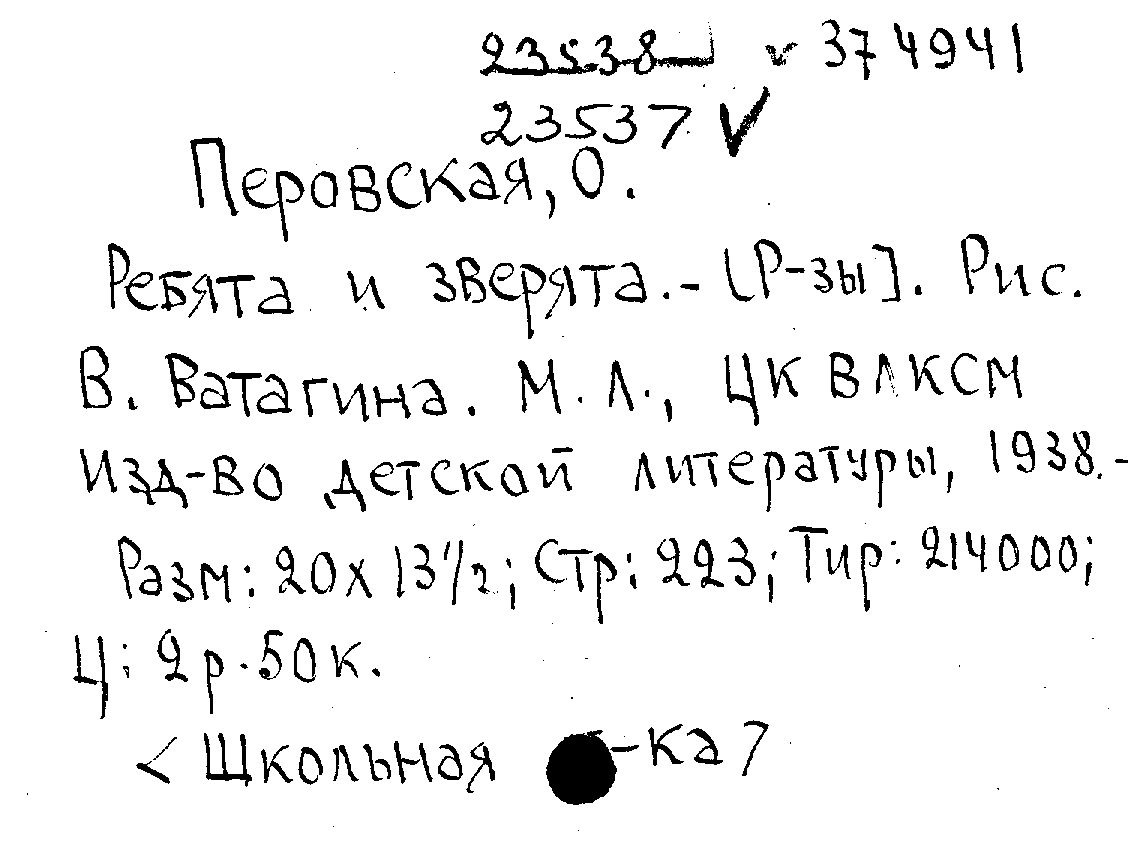 23538 v 374941
23537 V
Перовская, О.
Ребята и зверята.- [Р-зы]. Рис.
В. Ватагина. М. Л., ЦК ВЛКСМ
Изд-во детской литературы, 1938.-
Разм: 20х13 1/2; Стр: 223; Тир: 214000;
Ц: 2 р. 50 к.
< Школьная -ка >